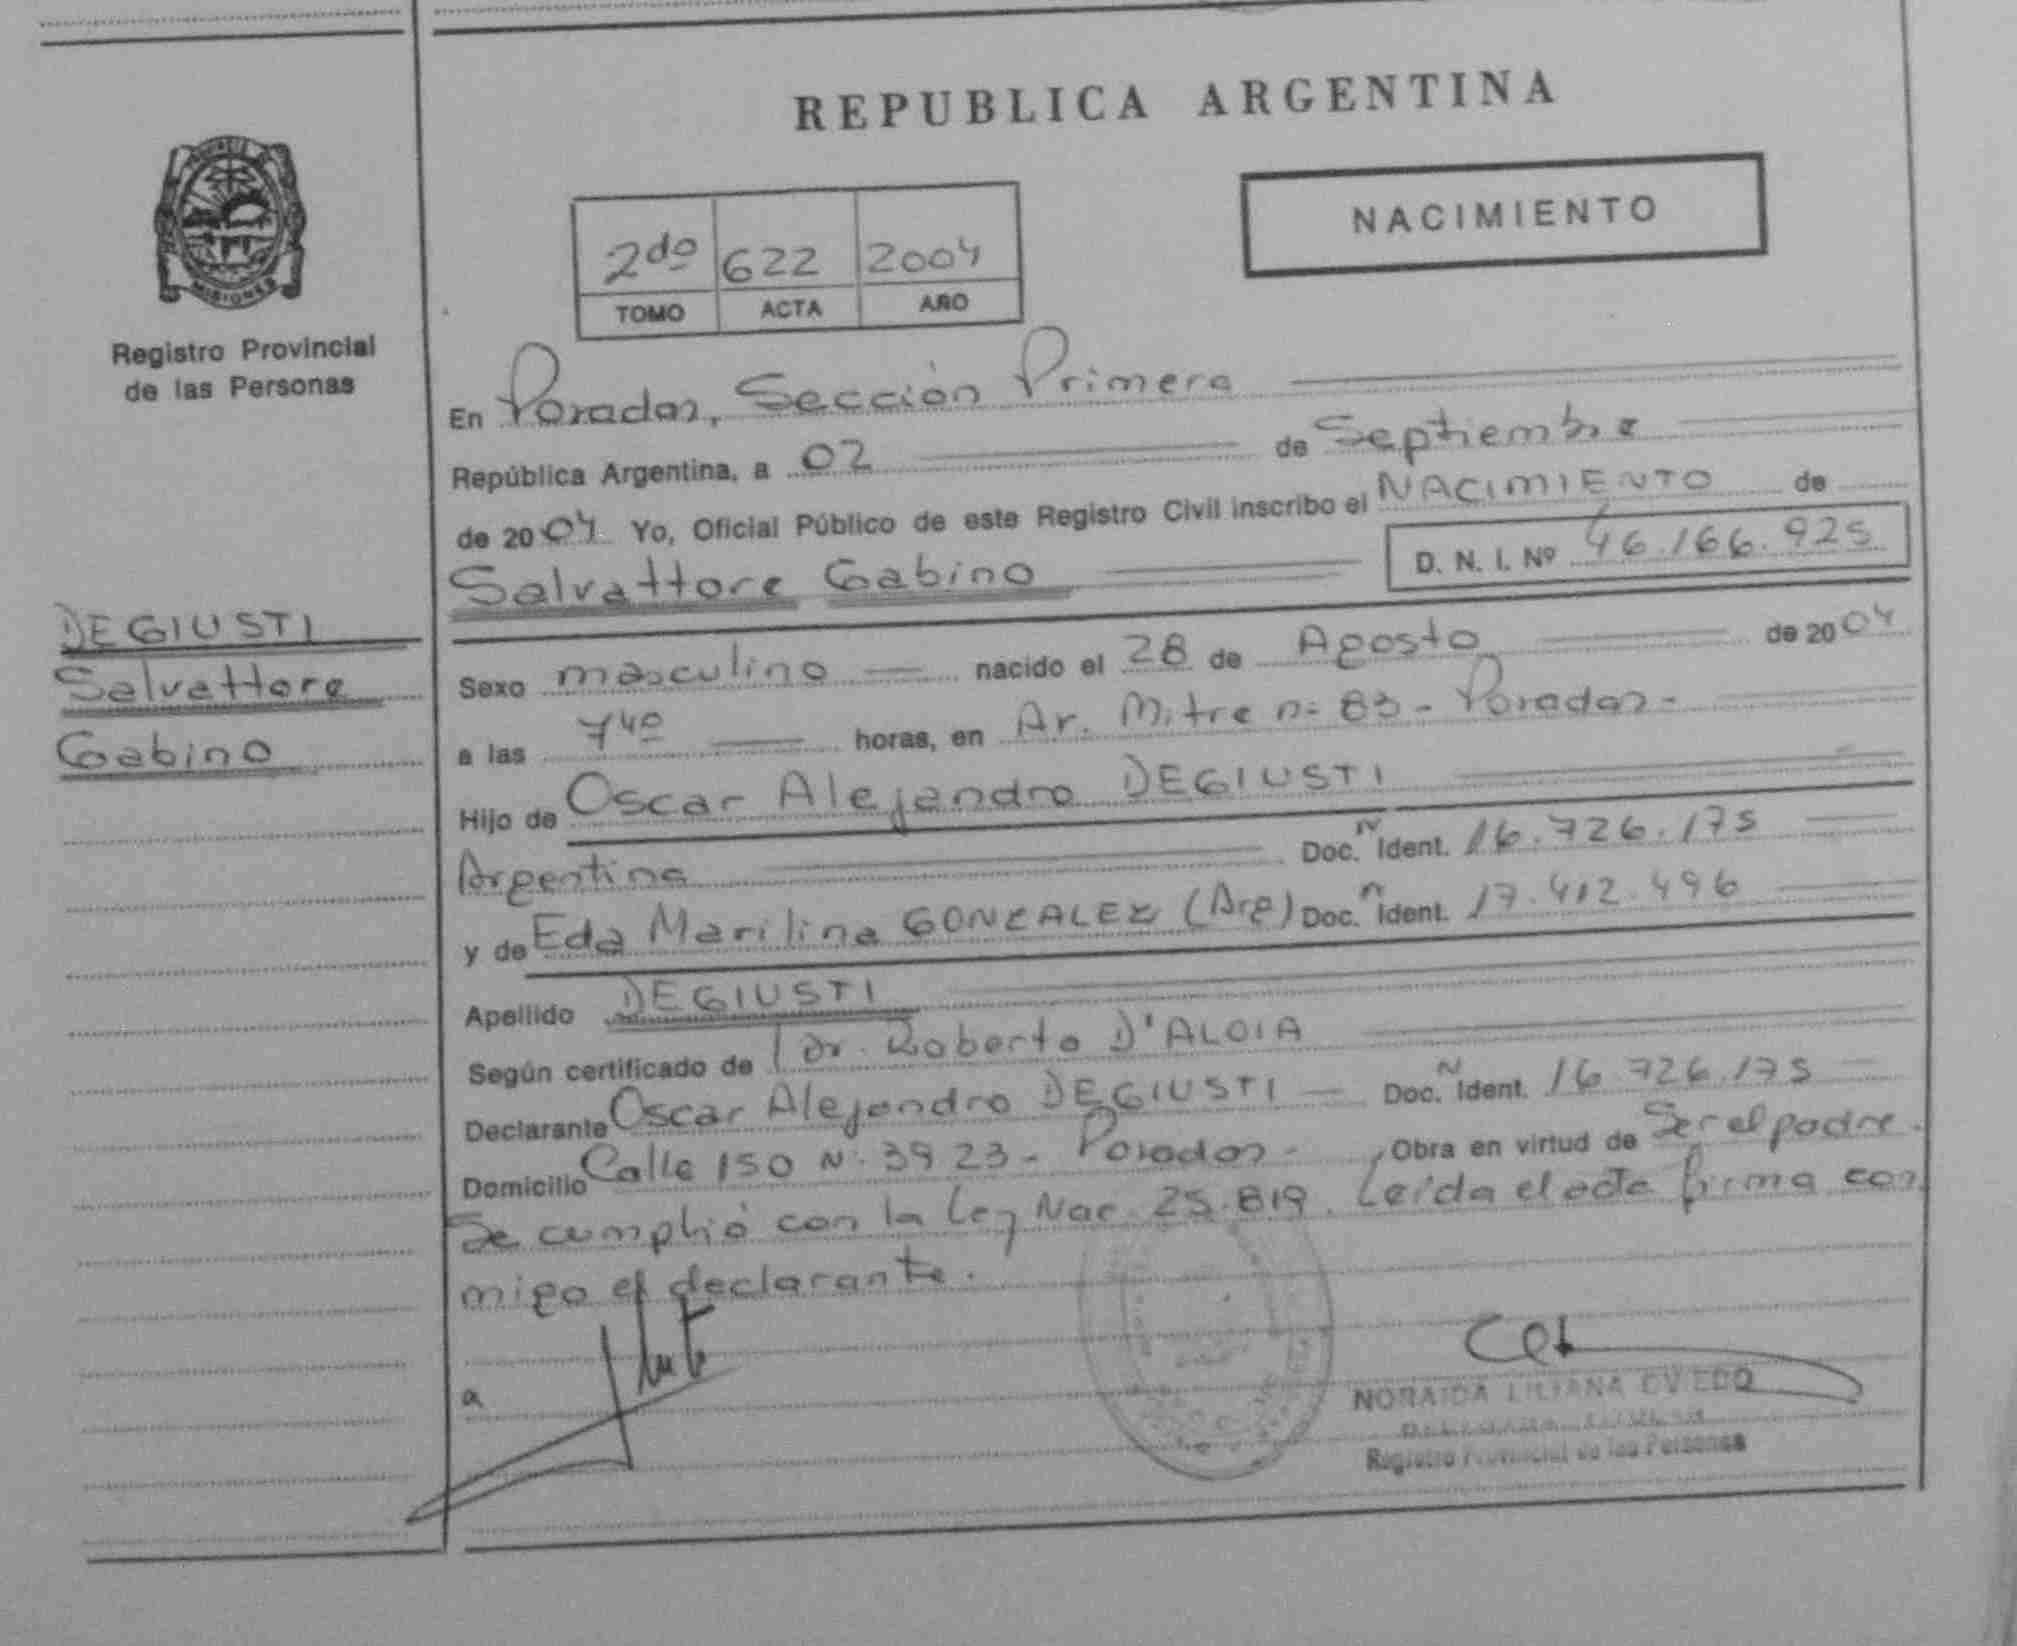 REPUBLICA ARGENTINA
NACIMIENTO
2do 622 2004
TOMO ACTA AÑO
MISIONES
Registro Provincial
de las Personas
En Posadas, Sección Primera
República Argentina, a 02 de Septiembre
de 2004 Yo, Oficial Público de este Registro Civil inscribo el NACIMIENTO de
Salvattore Gabino D. N. I. Nº 46.166.925
DEGIUSTI
Salvattore
Gabino
Sexo masculino nacido el 28 de Agosto de 2004
a las 7 40 horas, en Av. Mitre nº 83 - Posadas -
Hijo de Oscar Alejandro DEGIUSTI
Argentina Doc. N Ident. 16.726.175
y de Eda Marilina GONZALEZ (Arg) Doc. N Ident. 17.412.496
Apellido DEGIUSTI
Según certificado de Dr. Roberto D'ALOIA
Declarante Oscar Alejandro DEGIUSTI Doc. N Ident. 16.726.175
Domicilio Calle 150 Nº 3923 - Posadas - Obra en virtud de Ser el padre.
Se cumplió con la Ley Nac. 25.819. Leída el acta firma con
migo el declarante.
a
NORAIDA LILIANA OVIEDO
Registro Provincial de las Personas